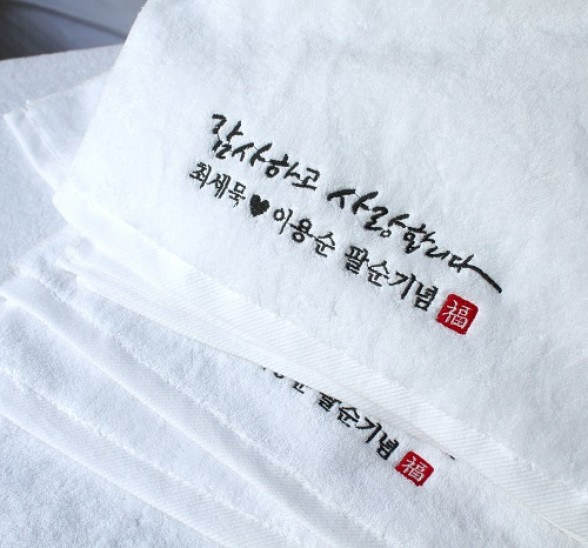 감사하고 사랑합니다
최세묵♥이용순 팔순기념 福
용순 팔순기념 福